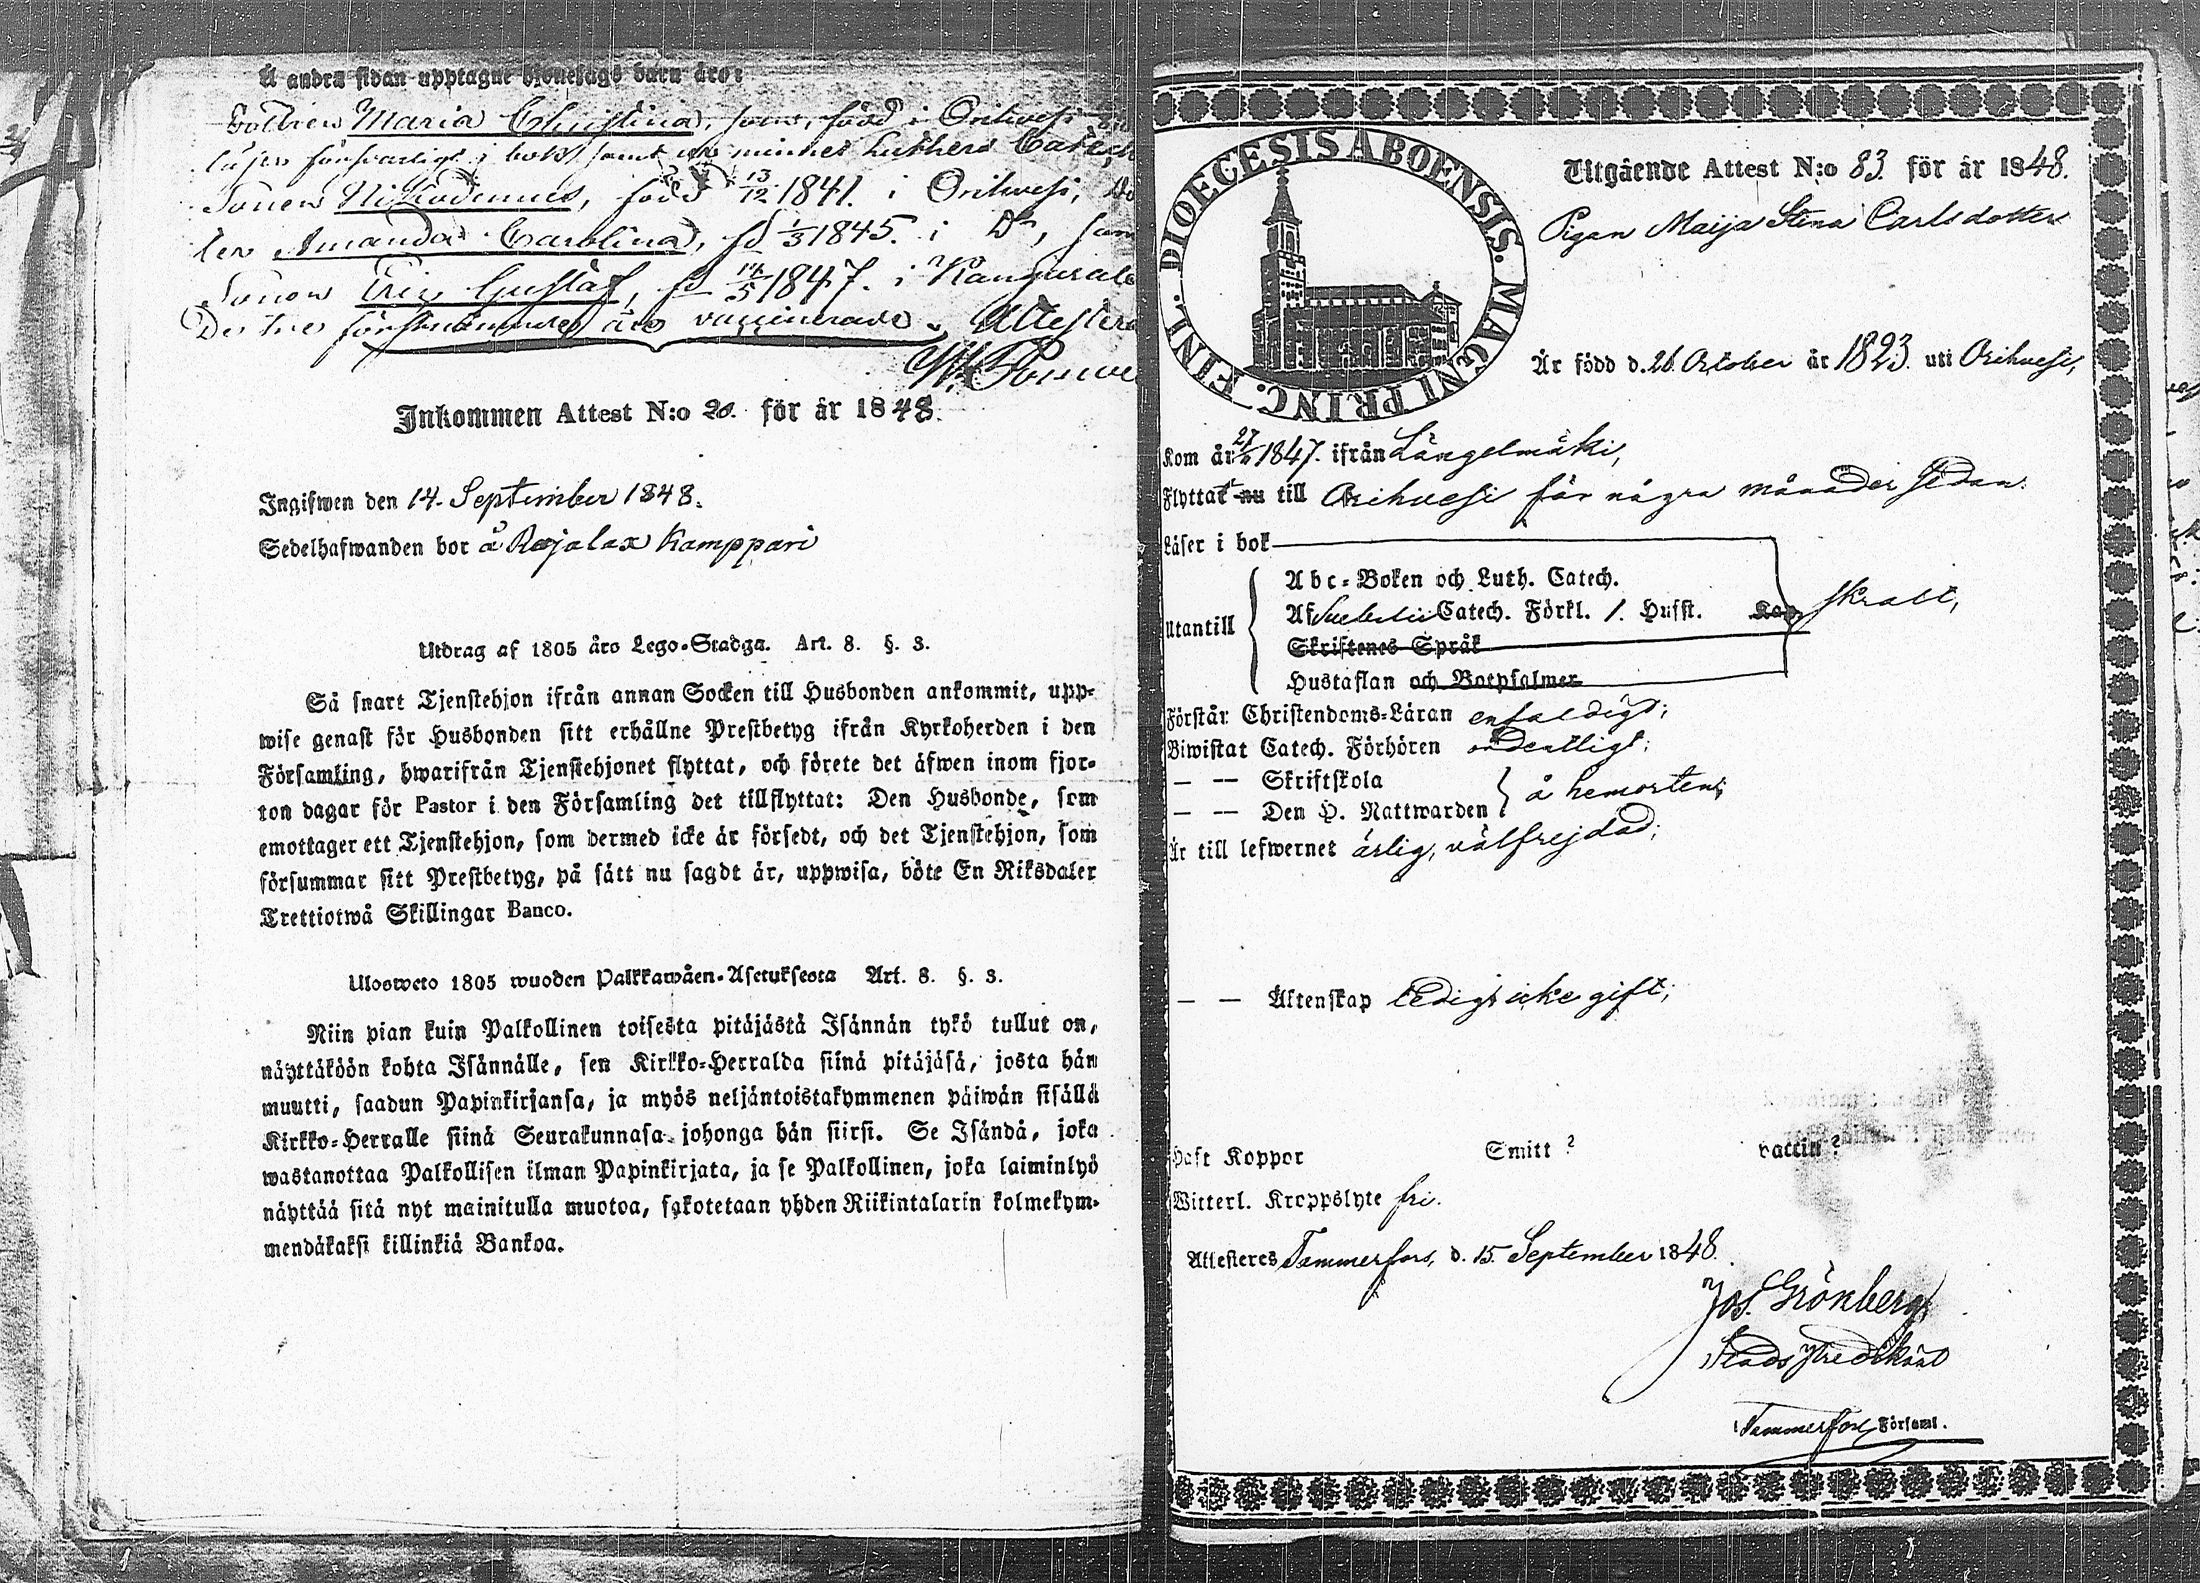 Å andra sidan upptagne hjonelags barn äro:
Dottren Maria Christina, född i Orihvesi
läser försvarligt i bok samt minnet Luthers Catech
Sonen Nikodemus, född 13/12 1841. i Orihvesi, Do
ter Amanda Carolina, fd 1/3 1845. i Do, sam
Sonen Eric Gustaf, fd 14/5 1847. i Kangasala
De tre förstnämnde äro vaccinerade. Attestera
Inkommen Attest N:o 20. för år 1848.
Ingifwen den 14. September 1848.
Sedelhafwanden bor å Rajalax Kamppari
Utdrag af 1805 års Lego-Stadga. Art. 8. §. 3.
Så snart Tjenstehjon ifrån annan Socken till Husbonden ankommit, upp-
wise genast för Husbonden sitt erhållne Prestbetyg ifrån Kyrkoherden i den
Församling, hwarifrån Tjenstehjonet flyttat, och förete det äfwen inom fjor-
ton dagar för Pastor i den Församling det tillflyttat: Den Husbonde, som
emottager ett Tjenstehjon, som dermed icke är försedt, och det Tjenstehjon, som
försummar sitt Prestbetyg, på sätt nu sagdt är, uppwisa, böte En Riksdaler
Trettiotwå Skillingar Banco.
Ulosweto 1805 wuoden Palkkawäen-Asetuksesta Art. 8. §. 3.
Niin pian kuin Palkollinen toisesta pitäjästä Isännän tykö tullut on,
näyttäköön kohta Isännälle, sen Kirkko-Herralda siinä pitäjäsä, josta hän
muutti, saadun Papinkirjansa, ja myös neljäntoistakymmenen päiwän sisällä
Kirkko-Herralle siinä Seurakunnasa johonga hän siirsi. Se Isändä, joka
wastanottaa Palkollisen ilman Papinkirjata, ja se Palkollinen, joka laiminlyö
näyttää sitä nyt mainitulla muotoa, sakotetaan yhden Riikintalarin kolmekym-
mendäkaksi killinkiä Bankoa.
DIOECESIS ABOENSIS. MAGNI PRINC. FINL.
Utgående Attest N:o 83 för år 1848.
Pigan Maija Stina Carlsdotter
Är född d. 26 October år 1823. uti Orihvesi,
Kom år 27/11 1847. ifrån Längelmäki,
Flyttat nu till Orihvesi för några månader sedan.
Läser i bok
Utantill
Abc-Boken och Luth. Catech.
Af Svebelii Catech. Förkl. 1. Hufst. Kap.
Skriftenes Språk
Hustaflan och Botpsalmer
skralt,
Förstår Christendoms-Läran enfaldigt;
Biwistat Catech. Förhören ordentligt;
— — Skriftskola
— — Den H. Nattwarden
å hemorten;
Är till lefwernet ärlig, välfrejdad;
— — Äktenskap ledig icke gift;
Haft Koppor Smitt? vaccin?
Witterl. Kroppslyte fri.
Attesteres Tammerfors, d. 15. September 1848.
Jos. Grönberg
Stads Predikant
Tammerfors Församl.